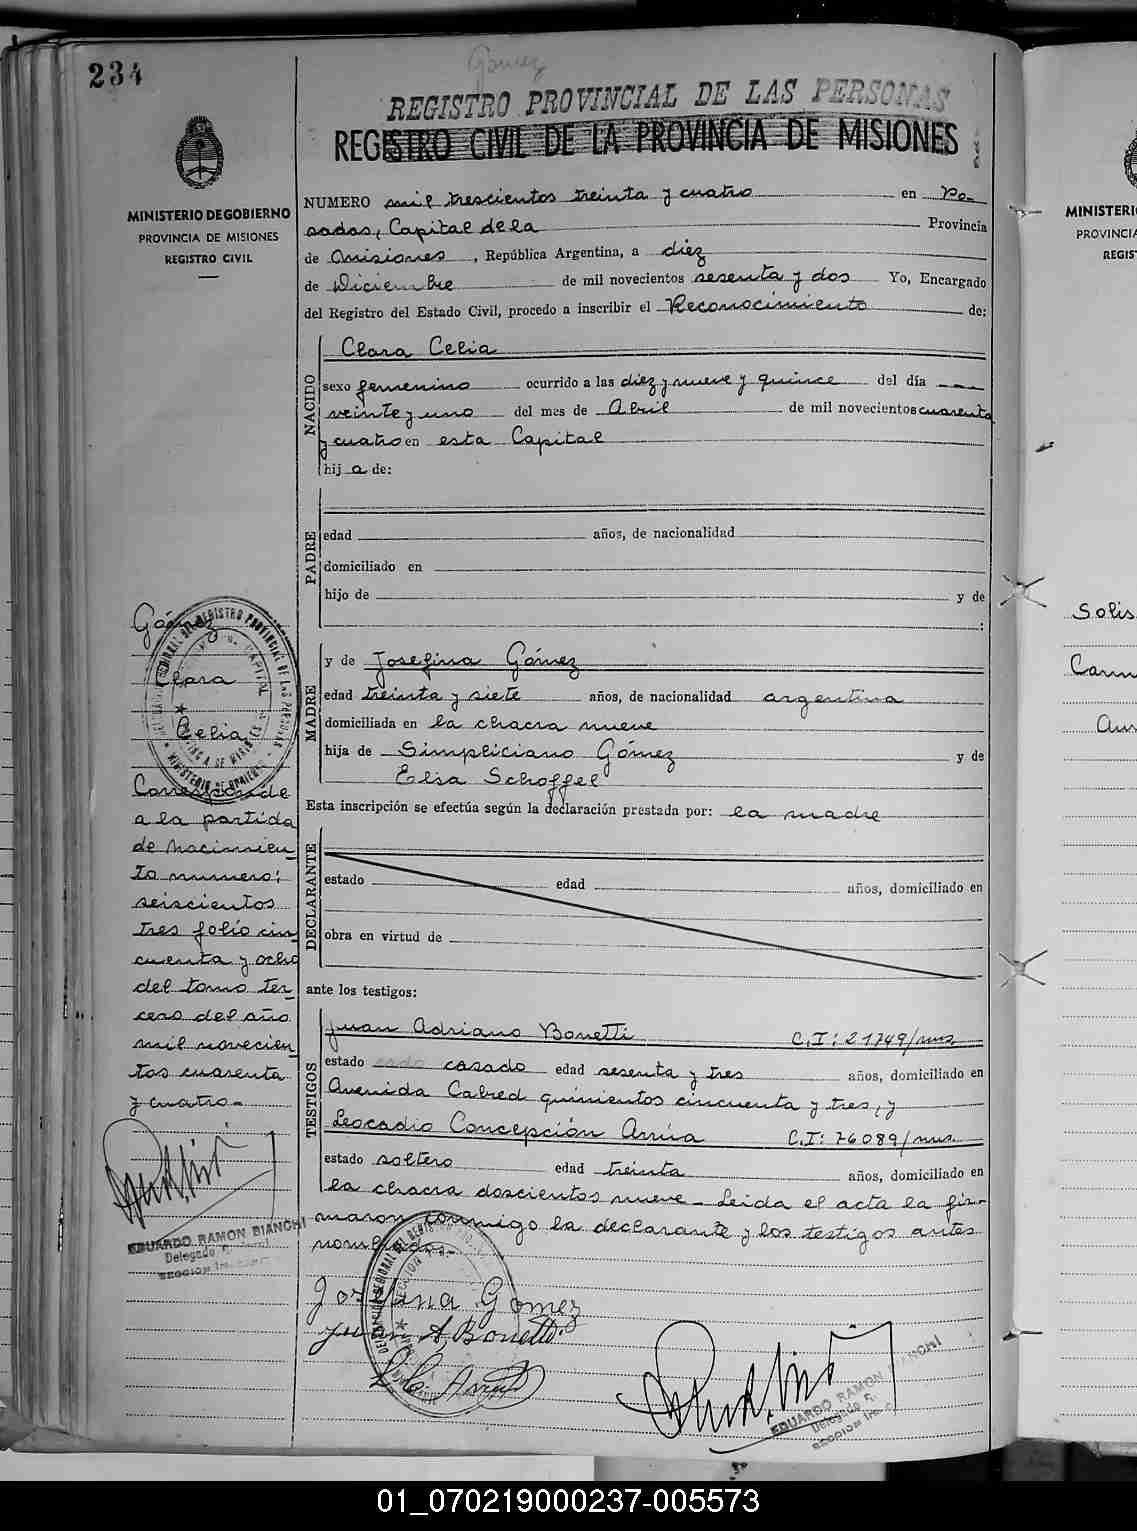 234
Gómez
REGISTRO PROVINCIAL DE LAS PERSONAS
REGISTRO CIVIL DE LA PROVINCIA DE MISIONES
MINISTERIO DE GOBIERNO
PROVINCIA DE MISIONES
REGISTRO CIVIL
NUMERO mil trescientos treinta y cuatro en Po-
sadas, Capital de la Provincia
de Misiones, República Argentina, a diez
de Diciembre de mil novecientos sesenta y dos Yo, Encargado
del Registro del Estado Civil, procedo a inscribir el Reconocimiento de:
NACIDO
Clara Celia
sexo femenino ocurrido a las diez y nueve y quince del día
veinte y uno del mes de Abril de mil novecientos cuarenta
y cuatro en esta Capital
hij a de:
PADRE
edad años, de nacionalidad
domiciliado en
hijo de y de
:
MADRE
y de Josefina Gómez
edad treinta y siete años, de nacionalidad argentina
domiciliada en la chacra nueve
hija de Simpliciano Gómez y de
Elsa Schoffel
Esta inscripción se efectúa según la declaración prestada por: la madre
DECLARANTE
estado edad años, domiciliado en
obra en virtud de
ante los testigos:
TESTIGOS
Juan Adriano Bonetti C.I: 21749/mns.
estado casado edad sesenta y tres años, domiciliado en
Avenida Cabred quinientos cincuenta y tres, y
Leocadio Concepción Arrúa C.I: 76089/mns.
estado soltero edad treinta años, domiciliado en
la chacra doscientos nueve - Leida el acta la fir-
maron conmigo la declarante y los testigos antes
nombrados.-
Josefina Gomez
Juan A. Bonetti
EDUARDO RAMON BIANCHI
Gómez
Clara
Celia
Corresponde
a la partida
de nacimien-
to numero:
seiscientos
tres folio cin-
cuenta y ocho
del tomo ter-
cero del año
mil novecien-
tos cuarenta
y cuatro-
EDUARDO RAMON BIANCHI
MINISTERIO
PROVINCIA
REGIST
Solis
01_070219000237-005573